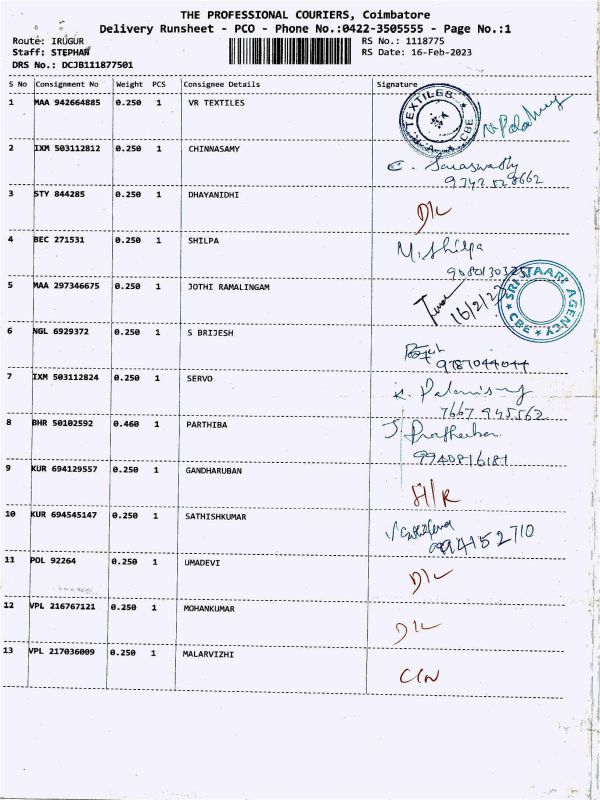 THE PROFESSIONAL COURIERS, Coimbatore
Delivery Runsheet - PCO - Phone No.:0422-3505555 - Page No.:1
Route: IRUGUR RS No.: 1118775
Staff: STEPHAN RS Date: 16-Feb-2023
DRS No.: DCJB111877501
S No Consignment No Weight PCS Consignee Details Signature
1 MAA 942664885 0.250 1 VR TEXTILES TEXTILES CBE
2 IXM 503112812 0.250 1 CHINNASAMY C. Saraswathy
3 STY 844285 0.250 1 DHAYANIDHI D/L
4 BEC 271531 0.250 1 SHILPA M. Shilpa
5 MAA 297346675 0.250 1 JOTHI RAMALINGAM 16/2/23 AGENCY CBE
6 NGL 6929372 0.250 1 S BRIJESH
9787044044
7 IXM 503112824 0.250 1 SERVO
7667 945562
8 BHR 50102592 0.460 1 PARTHIBA
9940816181
9 KUR 694129557 0.250 1 GANDHARUBAN
10 KUR 694545147 0.250 1 SATHISHKUMAR
11 POL 92264 0.250 1 UMADEVI D/L
12 VPL 216767121 0.250 1 MOHANKUMAR D/L
13 VPL 217036009 0.250 1 MALARVIZHI